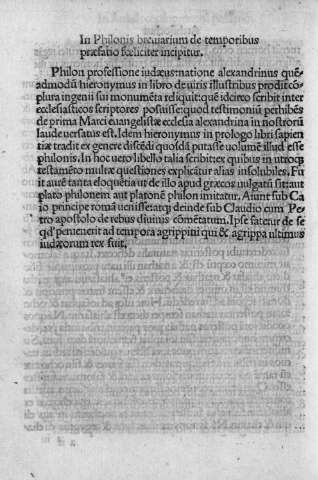 In Philonis breuiarium de temporibus
præfatio fœliciter incipitur.
Philon professione iudæus: natione alexandrinus quē-
admodū hieronymus in libro de uiris illustribus prodit cō-
plura ingenii sui monumēta reliquit: quē idcirco scribit inter
ecclesiasticos scriptores posuisse: quod testimoniū perhibēs
de prima Marci euangelistæ ecclesia alexandrina in nostrorū
laude uersatus est. Idem hieronymus in prologo libri sapien
tiæ tradit ex genere discēdi quosdā putasse volumē illud esse
philonis. In hoc uero libello talia scribit: ex quibus in utroq;
testamēto multæ quæstiones explicātur alias insolubiles. Fu
it autē tanta eloquētia ut de illo apud græcos uulgatū sit: aut
plato philonem aut platonē philon imitatur. Aiunt sub Ca
io principe romā uenisse: atq; deinde sub Claudio cum Pe-
tro apostolo de rebus diuinis cōmētatum. Ipse fatetur de se
qd' peruenerit ad tempora agrippini qui & agrippa ultimus
iudæorum rex fuit.